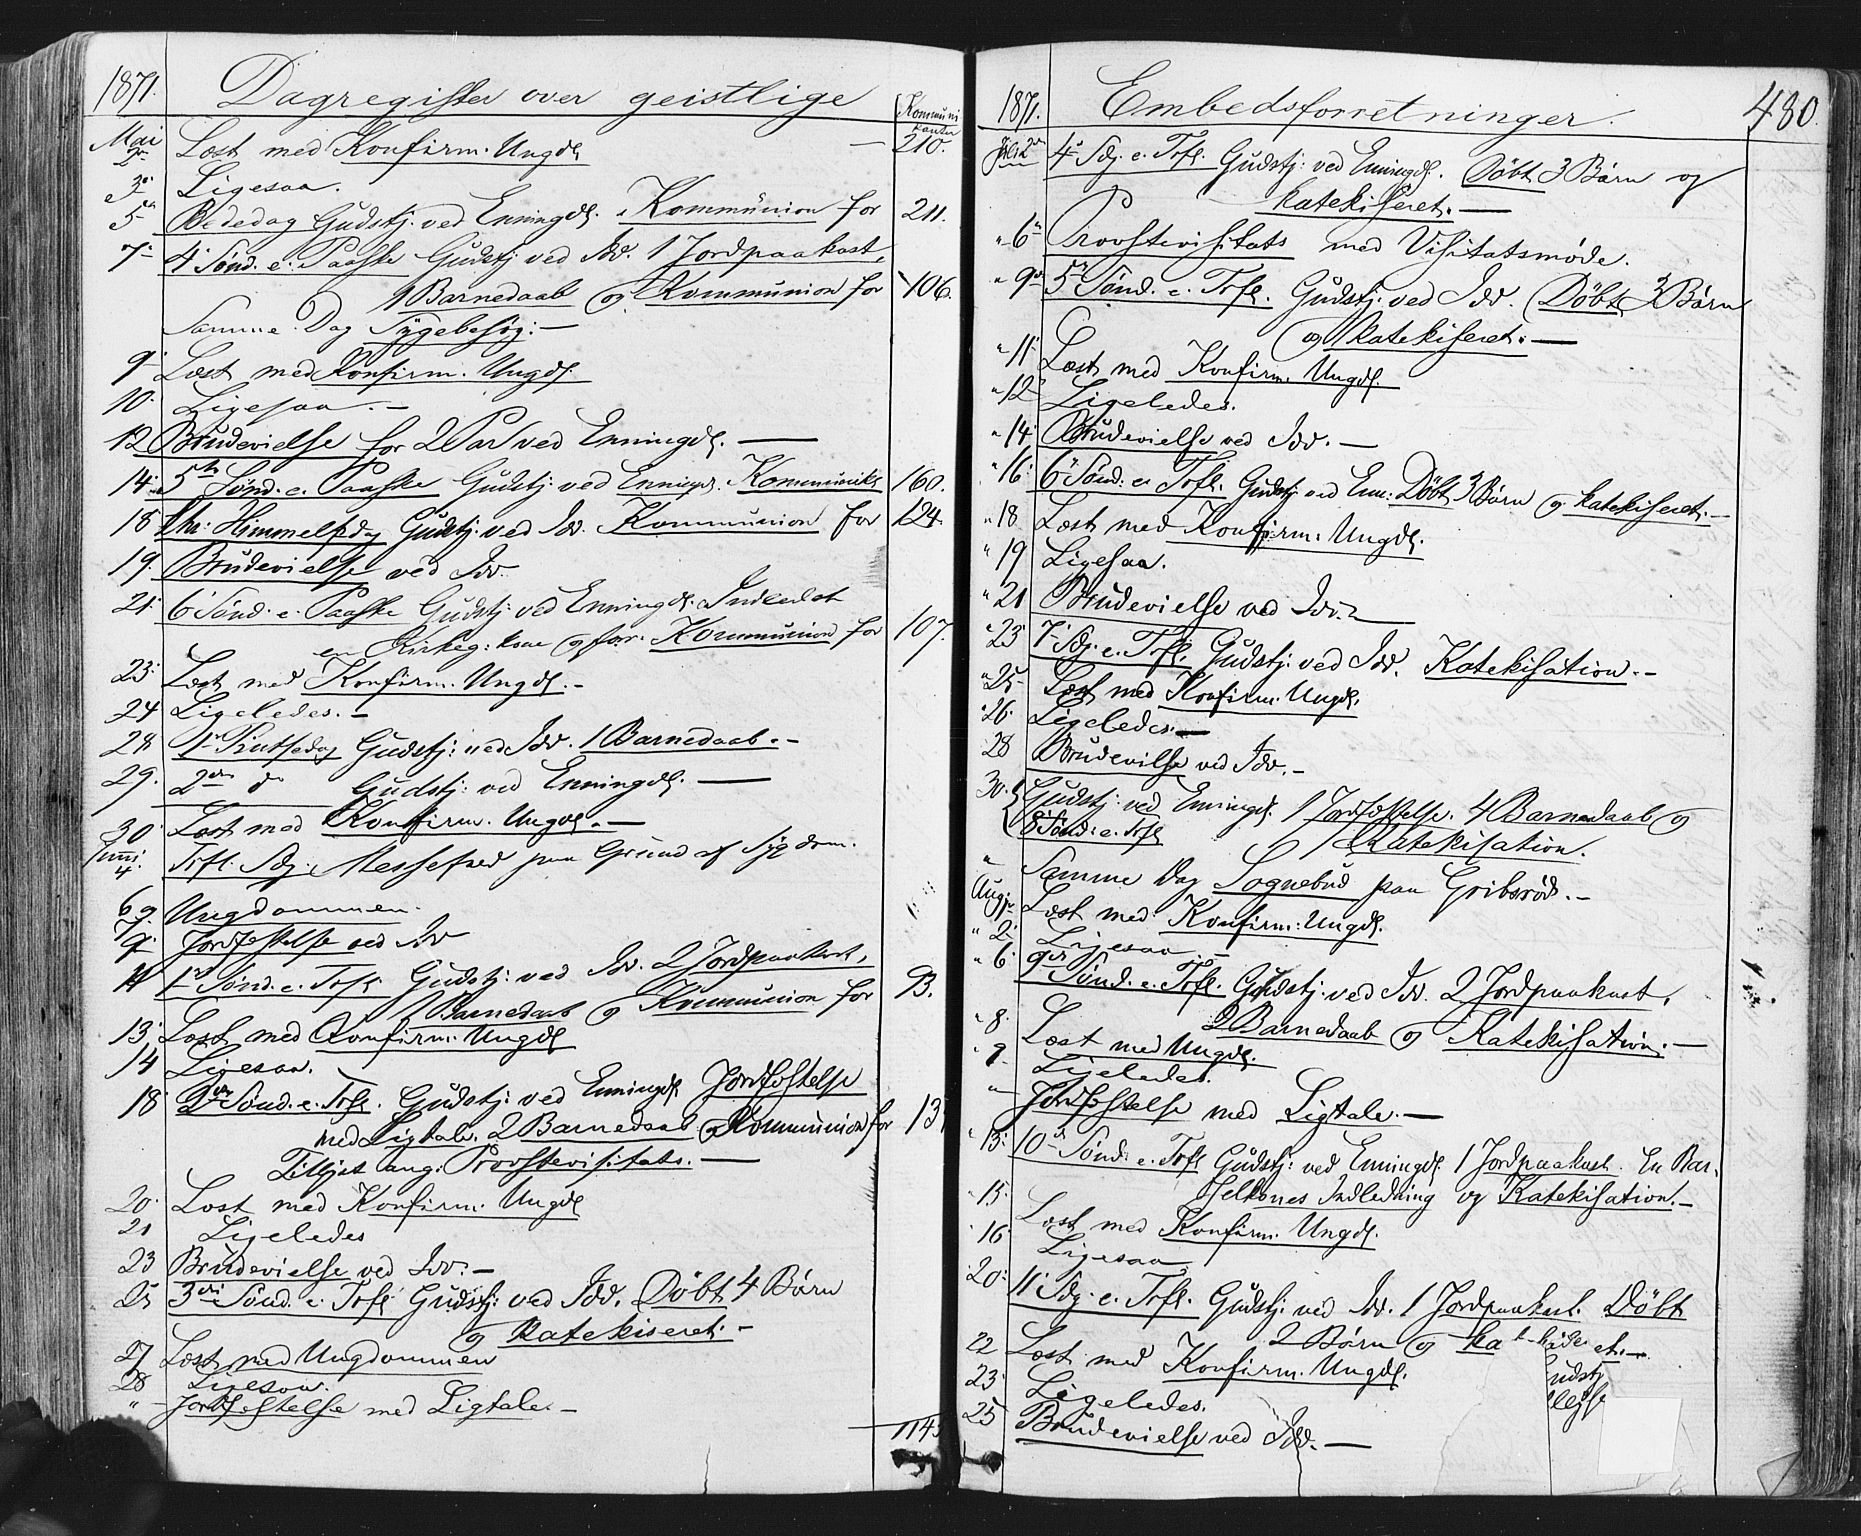 1871. Dagregister over geistlige
Kommuni
kanter
Mai
2n Læst med Konfirm. Ungd. — 210.
3n Ligesaa.
5n Bededag Gudstj. ved Enningdl. Kommunion for 211.
7n 4n Sønd. e. Paaske Gudstj ved Idd. 1 Jordpaakast,
1 Barnedaab og Kommunion for 106.
Samme Dag Sygebesøg. —
9n Læst med Konfirm. Ungd.
10. Ligesaa. —
12 Brudevielse for 2 Par ved Enningdl. —
14. 5te Sønd. e. Paaske Gudstj ved Enningd. Kommunik 160.
18 Chr: Himmelfdag Gudstj: ved Idd. Kommunion for 124.
19. Brudevielse ved Idd.
21. 6. Sønd. e. Paaske Gudstj: ved Enningdl. Indledet
en Kirkeg: kone og for. Kommunion for 107.
23. Læst med Konfirm. Ungd. —
24 Ligeledes. —
28 1n Pintsedag Gudstj: ved Idd. 1 Barnedaab. —
29. 2den do Gudstj: ved Enningdl. —
30. Læst med Konfirm. Ungd. —
Juni
4. Trft. Sdg: Messefred paa Grund af Sygdom.
6 Ungdommen.
9. Jordfæstelse ved Idd
11 1n Sønd. e. Trft. Gudstj: ved Idd. 2 Jordpaakast,
1 Barnedaab og Kommunion for 93.
13. Læst med Konfirm. Ungd
14 Ligesaa.
18. 2den Sønd. e. Trft. Gudstj: ved Enningdl. Jordfæstelse
med Ligtale. 2 Barnedaab og Kommunion for 13
Tillyst ang: Provstevisitats. —
20. Læst med Konfirm. Ungd
21 Ligeledes
23 Brudevielse ved Idd. —
25 3die Sønd. e. Trft. Gudstj: ved Idd. Døbt 4 Børn
og katekiseret. —
27 Læst med Ungdommen
28 Ligesaa.
" Jordfæstelse med Ligtale. —
1143
1871. Embedsforretninger. 480.
Juli 2n 4n Sdg. e. Trft. Gudstj: ved Enningdl. Døbt 3 Børn og
katekiseret. —
" 6n Provstevisitats med Visitatsmøde.
" 9n 5n Sønd. e. Trft. Gudstj: ved Idd. Døbt 3 Børn
og katekiseret. —
" 11. Læst med Konfirm. Ungd.
" 12. Ligeledes.
" 14. Brudevielse ved Idd. —
" 16. 6n Sønd. e. Trft. Gudstj ved Enn: Døbt 3 Børn og katekiseret. —
" 18 Læst med Konfirm. Ungd.
" 19 Ligesaa.
" 21 Brudevielse ved Idd.
" 23 7n Sdg. e. Trft. Gudstj: ved Idd. Katekisation. —
" 25 Læst med Konfirm. Ungd.
" 26. Ligeledes. —
28 Brudevilse ved Idd. —
30. Gudstj: ved Enningd. 1 Jordfæstelse. 4 Barnedaab og
8 Sønd: e. Trft Katekisation.
" Samme Dag Sognebud paa Gribsrød. —
Aug 1n Læst med Konfirm: Ungd.
" 2. Ligesaa —
" 6. 9de Sønd. e. Trft. Gudstj: ved Idd. 2 Jordpaakast,
2 Barnedaab og Katekisation. —
" 8. Læst med Ungd.
" 9. Ligeledes.
" Jordfæstelse med Ligtale. —
" 13. 10de Sønd: e. Trft Gudstj: ved Enningdl. 1 Jordpaakast. En Bar-
selkones Indledning og Katekisation. —
" 15. Læst med Konfirm. Ungd.
16. Ligesaa.
20. 11. Sdg. e. Trft. Gudstj: ved Idd. 1 Jordpaakast. Døbt
2 Børn og kat et. —
22 Læst med Konfirm. Ungd.
23. Ligeledes.
25 Brudevielse ved Idd. —
udstj